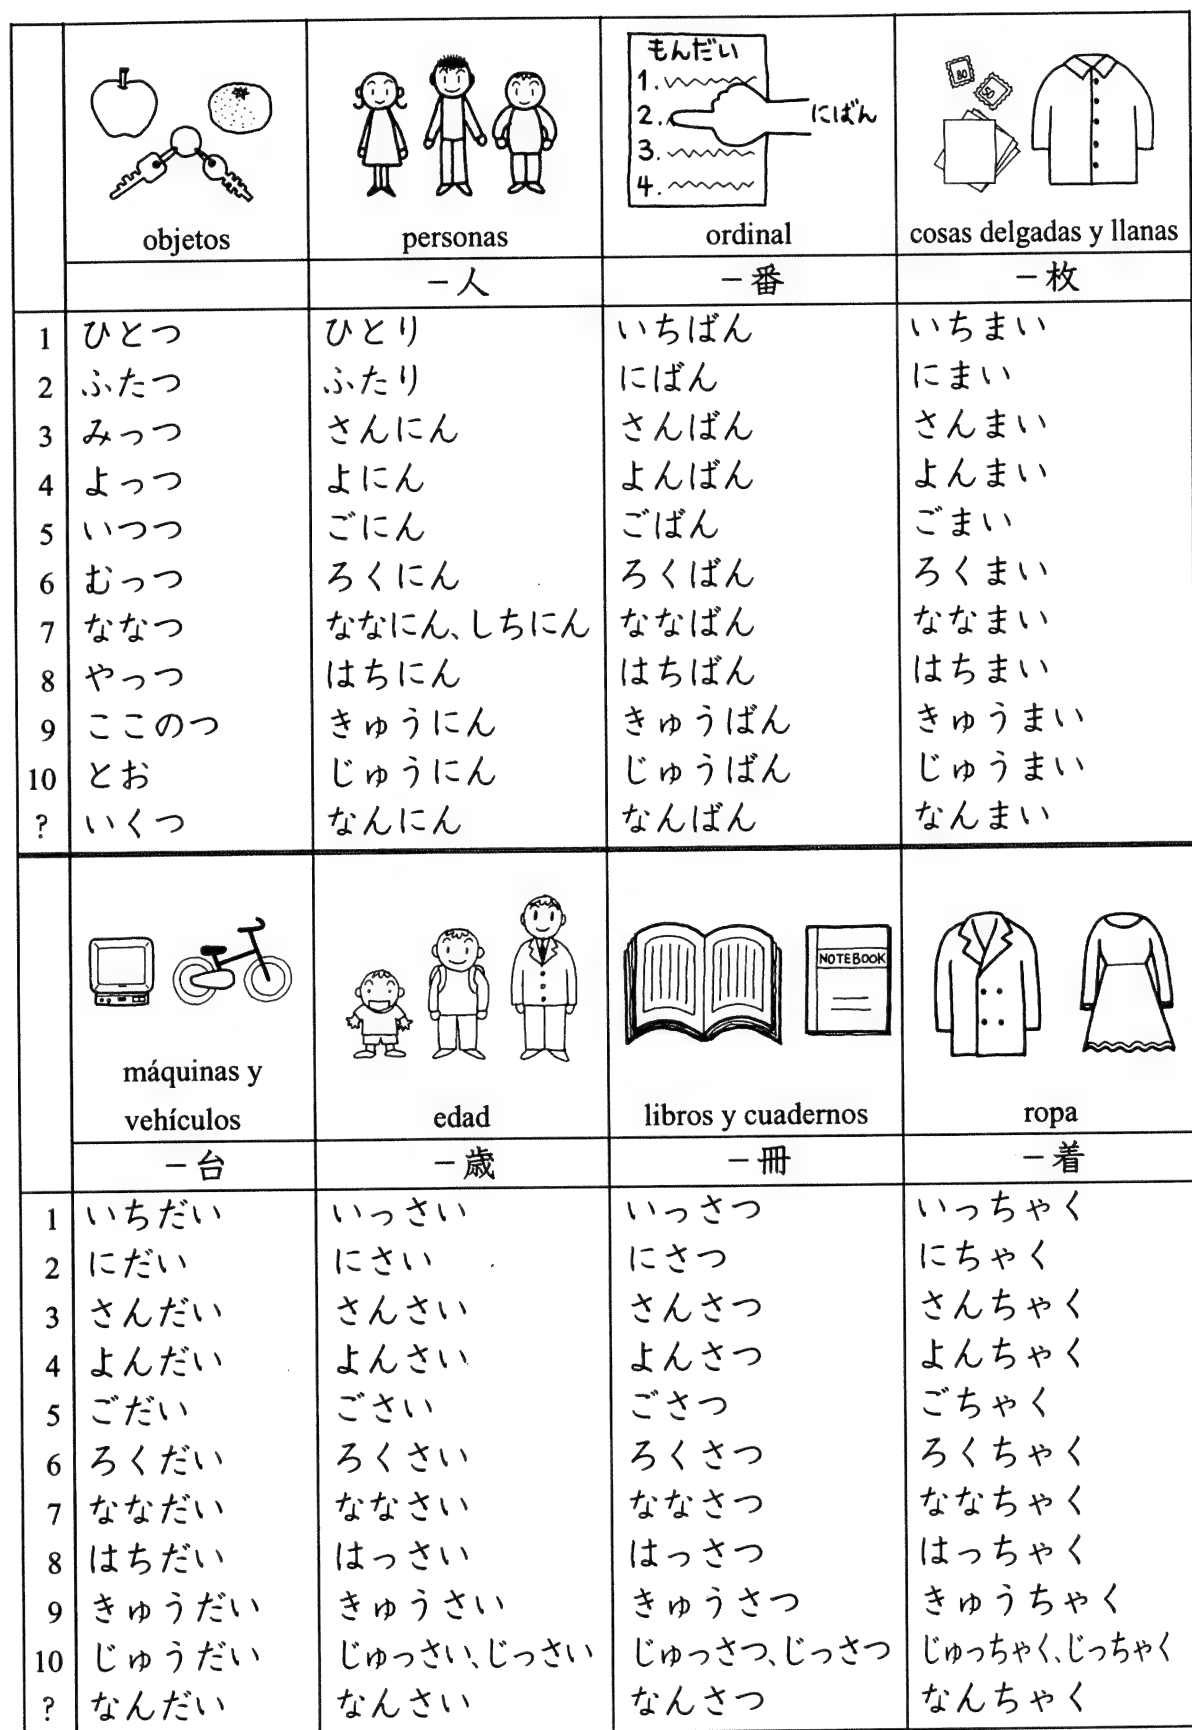 もんだい
1.
2. にばん
3.
4.
80 50
objetos personas ordinal cosas delgadas y llanas
－人 －番 －枚
1 ひとつ ひとり いちばん いちまい
2 ふたつ ふたり にばん にまい
3 みっつ さんにん さんばん さんまい
4 よっつ よにん よんばん よんまい
5 いつつ ごにん ごばん ごまい
6 むっつ ろくにん ろくばん ろくまい
7 ななつ ななにん、しちにん ななばん ななまい
8 やっつ はちにん はちばん はちまい
9 ここのつ きゅうにん きゅうばん きゅうまい
10 とお じゅうにん じゅうばん じゅうまい
? いくつ なんにん なんばん なんまい
NOTEBOOK
máquinas y
vehículos edad libros y cuadernos ropa
－台 －歳 －冊 －着
1 いちだい いっさい いっさつ いっちゃく
2 にだい にさい にさつ にちゃく
3 さんだい さんさい さんさつ さんちゃく
4 よんだい よんさい よんさつ よんちゃく
5 ごだい ごさい ごさつ ごちゃく
6 ろくだい ろくさい ろくさつ ろくちゃく
7 ななだい ななさい ななさつ ななちゃく
8 はちだい はっさい はっさつ はっちゃく
9 きゅうだい きゅうさい きゅうさつ きゅうちゃく
10 じゅうだい じゅっさい、じっさい じゅっさつ、じっさつ じゅっちゃく、じっちゃく
? なんだい なんさい なんさつ なんちゃく